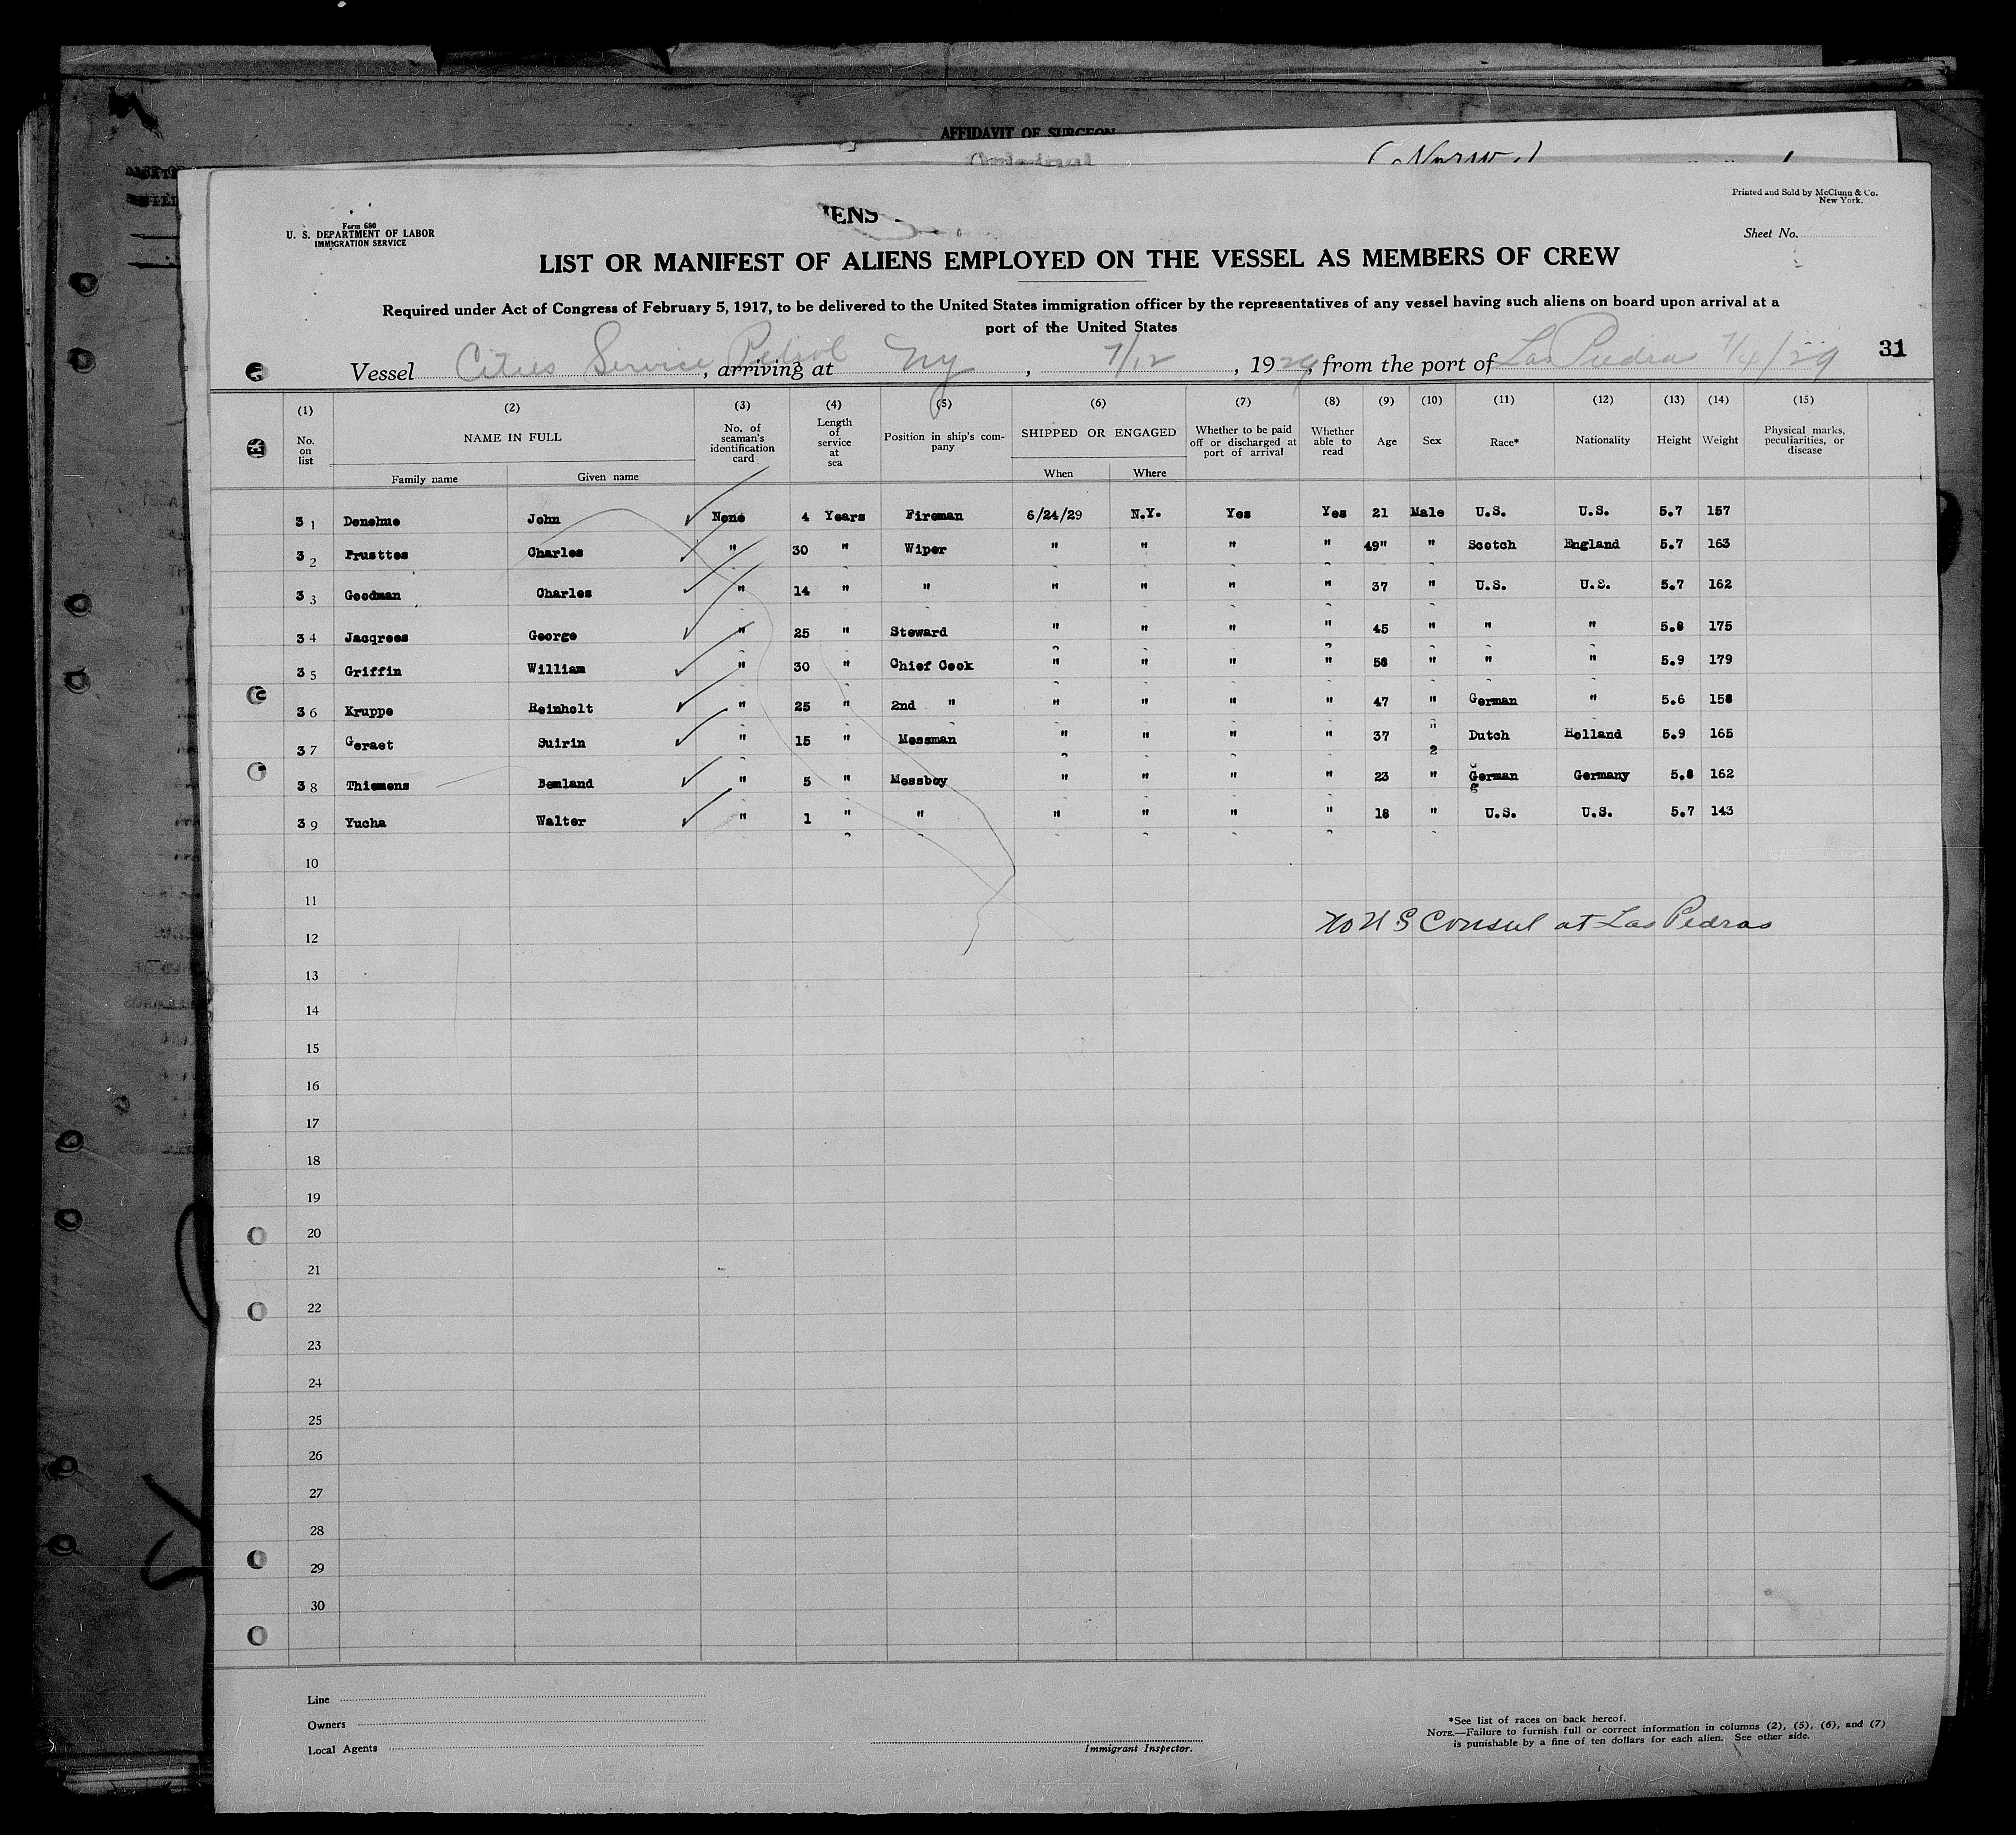 AFFIDAVIT OF SURGEON
IENS
Form 680
U. S. DEPARTMENT OF LABOR
IMMIGRATION SERVICE
Printed and Sold by McClunn & Co.
New York.
Sheet No.
LIST OR MANIFEST OF ALIENS EMPLOYED ON THE VESSEL AS MEMBERS OF CREW
Required under Act of Congress of February 5, 1917, to be delivered to the United States immigration officer by the representatives of any vessel having such aliens on board upon arrival at a
port of the United States
31
Vessel Cities Service Petrol, arriving at Ny, 7/12, 1929, from the port of Las Piedras 7/4/29
(1) (2) (3) (4) (5) (6) (7) (8) (9) (10) (11) (12) (13) (14) (15)
No. on list NAME IN FULL No. of seaman's identification card Length of service at sea Position in ship's company SHIPPED OR ENGAGED Whether to be paid off or discharged at port of arrival Whether able to read Age Sex Race* Nationality Height Weight Physical marks, peculiarities, or disease
Family name Given name When Where
3 1 Donohue John None 4 Years Fireman 6/24/29 N.Y. Yes Yes 21 Male U.S. U.S. 5.7 157
3 2 Prusttes Charles " 30 " Wiper " " " " 49" " Scotch England 5.7 163
3 3 Goodman Charles " 14 " " " " " " 37 " U.S. U.S. 5.7 162
3 4 Jacqrees George " 25 " Steward " " " " 45 " " " 5.8 175
3 5 Griffin William " 30 " Chief Cook " " " " 58 " " " 5.9 179
3 6 Kruppe Reinholt " 25 " 2nd " " " " " 47 " German " 5.6 158
3 7 Geraet Suirin " 15 " Messman " " " " 37 " Dutch Holland 5.9 165
3 8 Thiemens Bemland " 5 " Messboy " " " " 23 " German Germany 5.8 162
3 9 Yucha Walter " 1 " " " " " " 18 " U.S. U.S. 5.7 143
10
11
12 No U S Consul at Las Pedras
13
14
15
16
17
18
19
20
21
22
23
24
25
26
27
28
29
30
Line
Owners
Local Agents
Immigrant Inspector.
*See list of races on back hereof.
NOTE.—Failure to furnish full or correct information in columns (2), (5), (6), and (7)
is punishable by a fine of ten dollars for each alien. See other side.